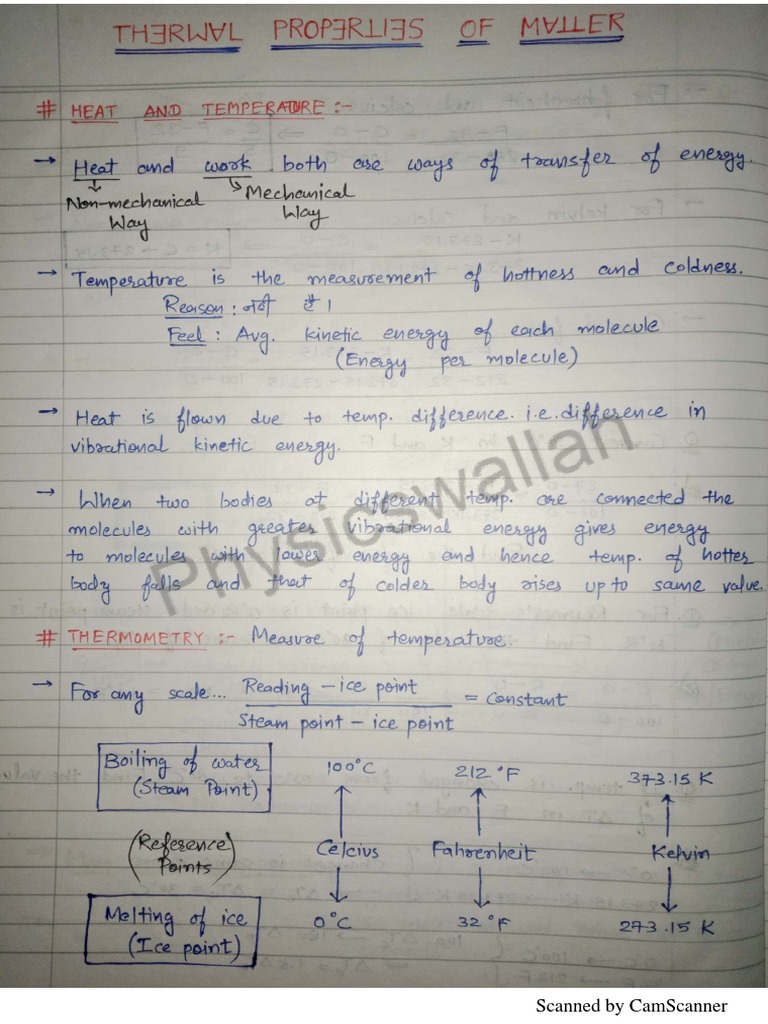 THERMAL PROPERTIES OF MATTER
# HEAT AND TEMPERATURE :-
→ Heat and work both are ways of transfer of energy.
Non-mechanical Way
Mechanical Way
→ Temperature is the measurement of hottness and coldness.
Reason : नहीं है।
Feel : Avg. kinetic energy of each molecule
(Energy per molecule)
→ Heat is flown due to temp. difference. i.e. difference in
vibrational kinetic energy.
→ When two bodies at different temp. are connected the
molecules with greater vibrational energy gives energy
to molecules with lower energy and hence temp. of hotter
body falls and that of colder body rises up to same value.
Physicswallah
# THERMOMETRY :- Measure of temperature.
→ For any scale... Reading - ice point / Steam point - ice point = Constant
Boiling of water (Steam Point) 100°C 212 °F 373.15 K
(Reference Points) Celcius Fahrenheit Kelvin
Melting of ice (Ice point) 0°C 32 °F 273.15 K
Scanned by CamScanner